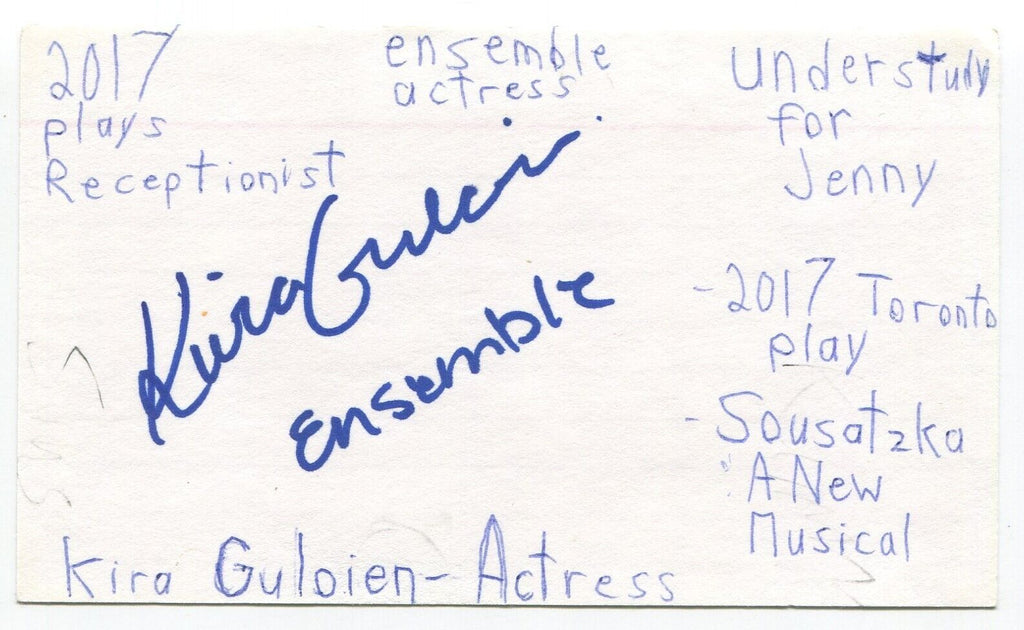 2017
plays
Receptionist
ensemble
actress
Understudy
for
Jenny
Kira Guloien
Ensemble
-2017 Toronto
play
-Sousatzka
"A New
Musical
Kira Guloien-Actress